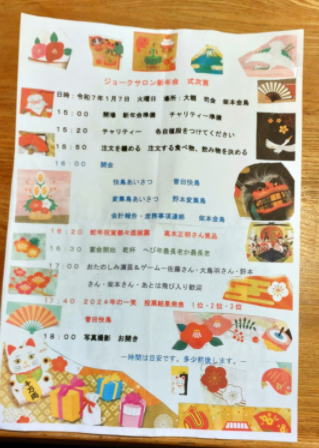 ジョークサロン新年会 式次第
日時:令和7年1月7日 火曜日 場所:大鵬 司会 柴本会鳥
15:00 開場 新年会準備 チャリティー準備
15:20 チャリティー 各自値段をつけてください
15:50 注文を纏める 注文する食べ物、飲み物を決める
16:00 開会
快鳥あいさつ 菅目快鳥
変集鳥あいさつ 野本変集鳥
会計報告・庶務事項連絡 柴本会鳥
16:20 蛇年祝賀 高木正明さん発品
16:30 宴会開始 乾杯 へび年最長老か最長老
17:00 おたのしみ演芸&ゲーム…佐藤さん・大鳥羽さん・野本
さん・柴本さん・あとは飛び入り歓迎
17:40 2024年の一笑 投票結果発表 1位・2位・3位
菅目快鳥
18:00 写真撮影 お開き
―時間は目安です。多少前後します。―